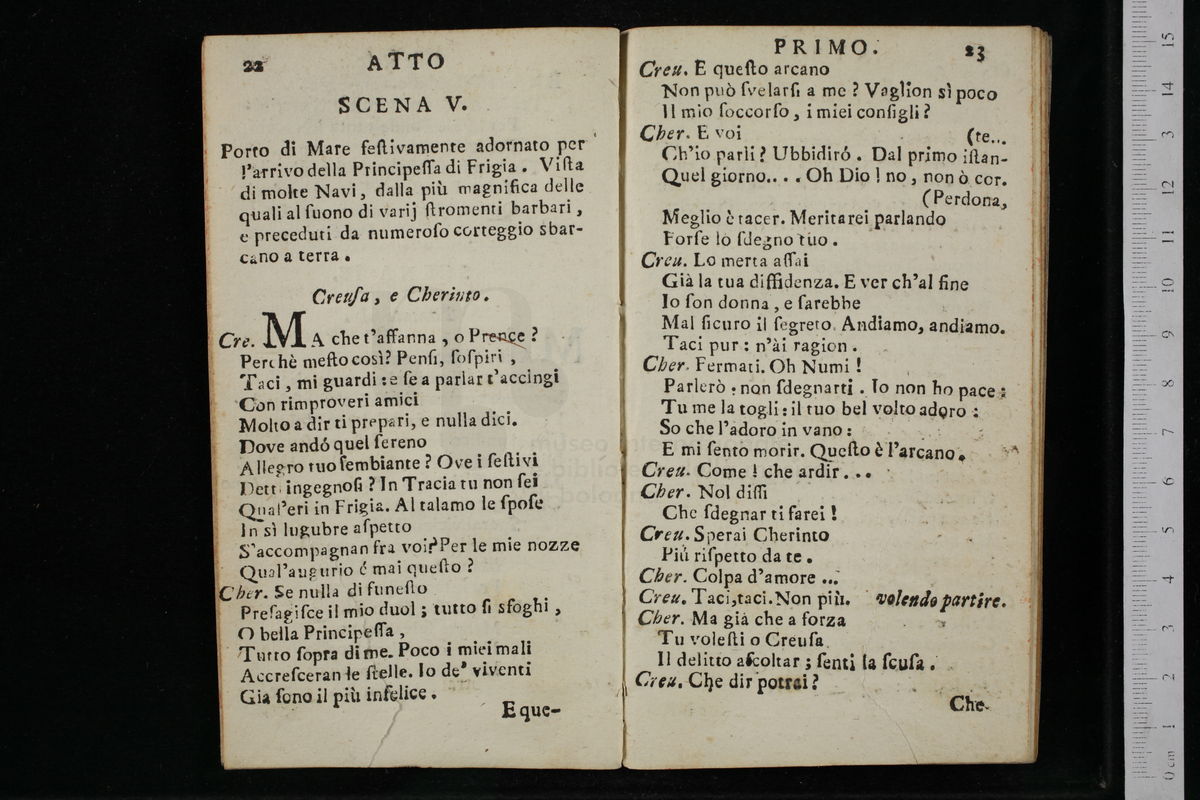 22
ATTO
SCENA V.
Porto di Mare feſtivamente adornato per
l'arrivo della Principeſſa di Frigia. Viſta
di molte Navi, dalla più magnifica delle
quali al ſuono di varij ſtromenti barbari,
e preceduti da numeroſo corteggio sbar-
cano a terra.
Creuſa, e Cherinto.
Cre. MA che t'affanna, o Prence?
Perchè meſto così? Penſi, ſoſpiri,
Taci, mi guardi: e ſe a parlar t'accingi
Con rimproveri amici
Molto a dir ti prepari, e nulla dici.
Dove andó quel ſereno
Allegro tuo ſembiante? Ove i feſtivi
Detti ingegnoſi? In Tracia tu non ſei
Qual'eri in Frigia. Al talamo le ſpoſe
In sì lugubre aſpetto
S'accompagnan fra voi? Per le mie nozze
Qual'augurio é mai queſto?
Cher. Se nulla di funeſto
Preſagiſce il mio duol; tutto ſi sfoghi,
O bella Principeſſa,
Tutto ſopra di me. Poco i miei mali
Accreſceran le ſtelle. Io de' viventi
Gia ſono il più infelice.
E que-
PRIMO.
23
Creu. E queſto arcano
Non può ſvelarſi a me? Vaglion sì poco
Il mio ſoccorſo, i miei conſigli?
Cher. E voi (te...
Ch'io parli? Ubbidiró. Dal primo iſtan-
Quel giorno.... Oh Dio! no, non ò cor.
(Perdona,
Meglio è tacer. Meritarei parlando
Forſe lo ſdegno tuo.
Creu. Lo merta aſſai
Già la tua diffidenza. E ver ch'al fine
Io ſon donna, e ſarebbe
Mal ſicuro il ſegreto. Andiamo, andiamo.
Taci pur: n'ài ragion.
Cher. Fermati. Oh Numi!
Parlerò: non ſdegnarti. Io non ho pace:
Tu me la togli: il tuo bel volto adoro:
So che l'adoro in vano:
E mi ſento morir. Queſto è l'arcano.
Creu. Come! che ardir...
Cher. Nol diſſi
Che ſdegnar ti farei!
Creu. Sperai Cherinto
Più riſpetto da te.
Cher. Colpa d'amore...
Creu. Taci, taci. Non più. volendo partire.
Cher. Ma già che a forza
Tu voleſti o Creuſa
Il delitto aſcoltar; ſenti la ſcuſa.
Creu. Che dir potrai?
Che
0 cm 1 2 3 4 5 6 7 8 9 10 11 12 13 14 15